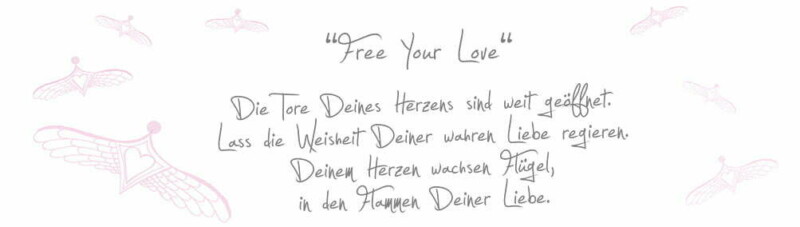 “Free Your Love“
Die Tore Deines Herzens sind weit geöffnet.
Lass die Weisheit Deiner wahren Liebe regieren.
Deinem Herzen wachsen Flügel,
in den Flammen Deiner Liebe.